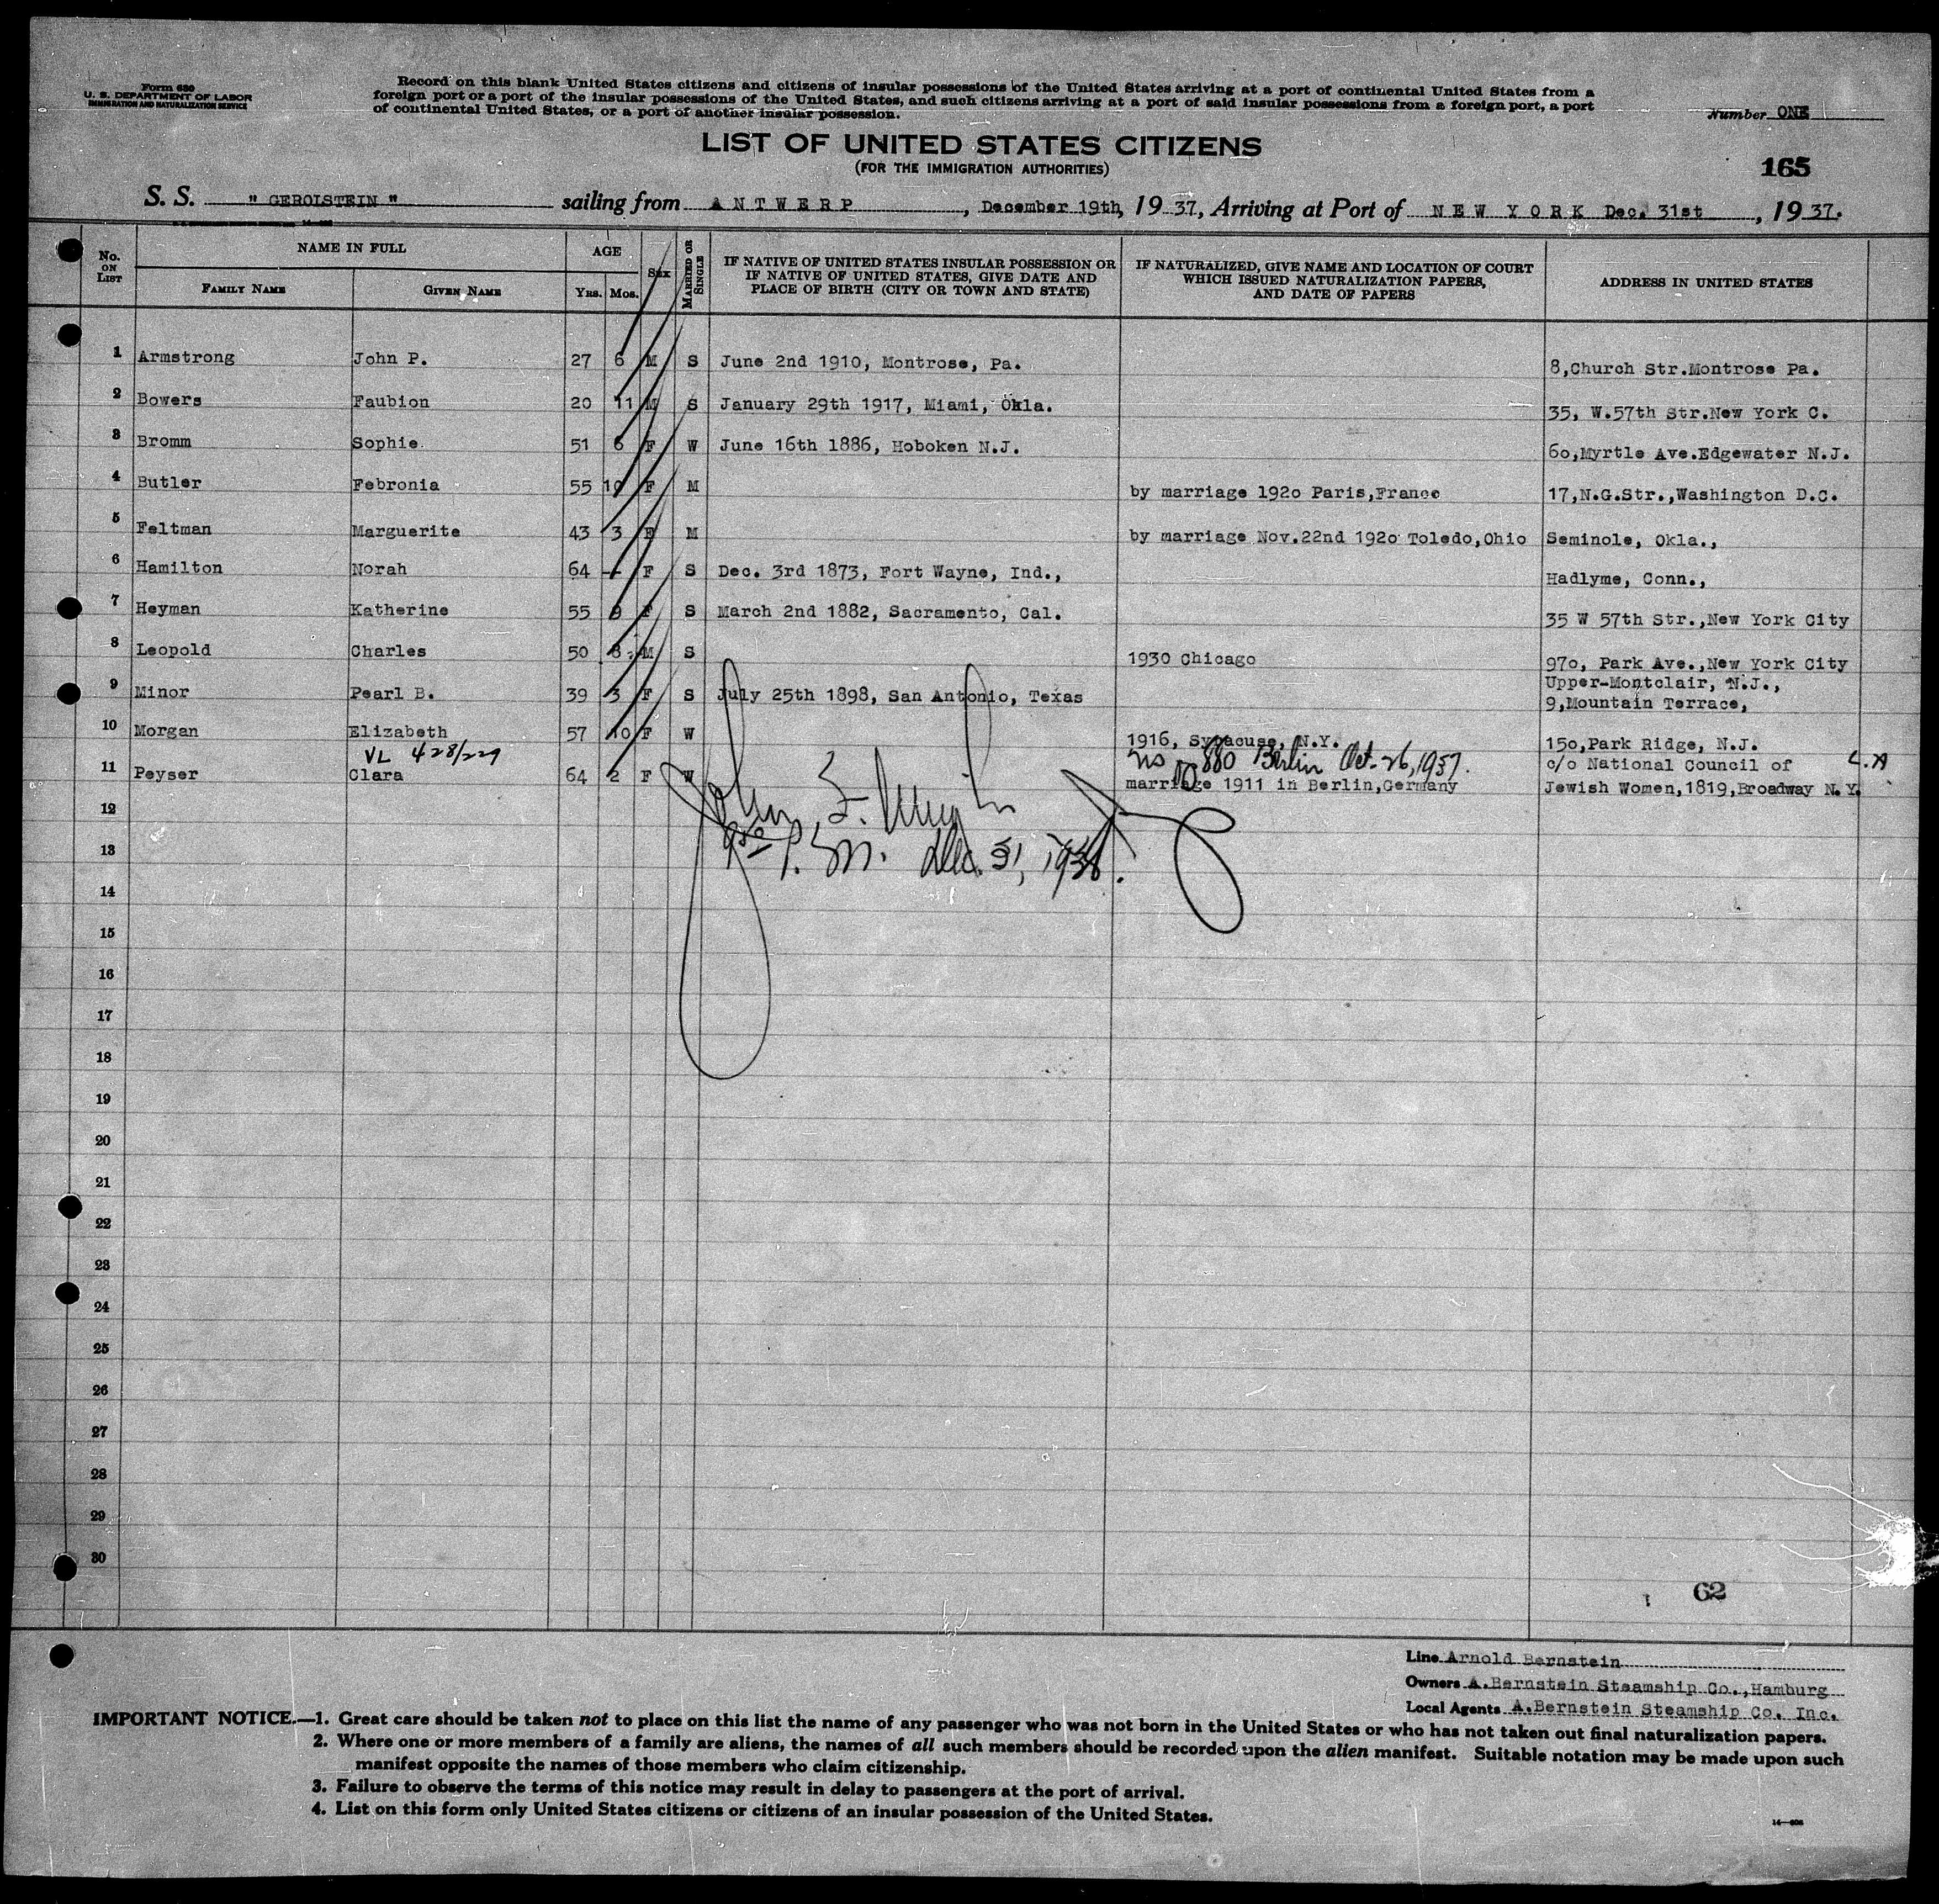 Form 630
U. S. DEPARTMENT OF LABOR
IMMIGRATION AND NATURALIZATION SERVICE
Record on this blank United States citizens and citizens of insular possessions of the United States arriving at a port of continental United States from a
foreign port or a port of the insular possessions of the United States, and such citizens arriving at a port of said insular possessions from a foreign port, a port
of continental United States, or a port of another insular possession.
Number ONE
LIST OF UNITED STATES CITIZENS
(FOR THE IMMIGRATION AUTHORITIES)
165
S. S. " GEROLSTEIN " sailing from ANTWERP, December 19th, 1937, Arriving at Port of NEW YORK Dec. 31st, 1937.
No. ON LIST
NAME IN FULL
FAMILY NAME
GIVEN NAME
AGE
Yrs. Mos.
Sex
MARRIED OR SINGLE
IF NATIVE OF UNITED STATES INSULAR POSSESSION OR
IF NATIVE OF UNITED STATES, GIVE DATE AND
PLACE OF BIRTH (CITY OR TOWN AND STATE)
IF NATURALIZED, GIVE NAME AND LOCATION OF COURT
WHICH ISSUED NATURALIZATION PAPERS,
AND DATE OF PAPERS
ADDRESS IN UNITED STATES
1 Armstrong John P. 27 6 M S June 2nd 1910, Montrose, Pa. 8,Church Str.Montrose Pa.
2 Bowers Faubion 20 11 M S January 29th 1917, Miami, Okla. 35, W.57th Str.New York C.
3 Bromm Sophie 51 6 F W June 16th 1886, Hoboken N.J. 6o,Myrtle Ave.Edgewater N.J.
4 Butler Febronia 55 10 F M by marriage 192o Paris,France 17,N.G.Str.,Washington D.C.
5 Feltman Marguerite 43 3 F M by marriage Nov.22nd 192o Toledo,Ohio Seminole, Okla.,
6 Hamilton Norah 64 - F S Dec. 3rd 1873, Fort Wayne, Ind., Hadlyme, Conn.,
7 Heyman Katherine 55 9 F S March 2nd 1882, Sacramento, Cal. 35 W 57th Str.,New York City
8 Leopold Charles 50 8 M S 1930 Chicago 97o, Park Ave.,New York City
9 Minor Pearl B. 39 3 F S July 25th 1898, San Antonio, Texas Upper-Montclair, N.J.,
9,Mountain Terrace,
10 Morgan Elizabeth 57 10 F W 1916, Syracuse, N.Y. 15o,Park Ridge, N.J.
VL 428/229 880 Berlin Oct. 26, 1937.
11 Peyser Clara 64 2 F W marriage 1911 in Berlin,Germany c/o National Council of
Jewish Women,1819,Broadway N.Y.
John
P. M. Dec. 31,
12
13
14
15
16
17
18
19
20
21
22
23
24
25
26
27
28
29
30
62
Line Arnold Bernstein
Owners A.Bernstein Steamship Co.,Hamburg
Local Agents A.Bernstein Steamship Co. Inc.
IMPORTANT NOTICE.—1. Great care should be taken not to place on this list the name of any passenger who was not born in the United States or who has not taken out final naturalization papers.
2. Where one or more members of a family are aliens, the names of all such members should be recorded upon the alien manifest. Suitable notation may be made upon such
manifest opposite the names of those members who claim citizenship.
3. Failure to observe the terms of this notice may result in delay to passengers at the port of arrival.
4. List on this form only United States citizens or citizens of an insular possession of the United States.